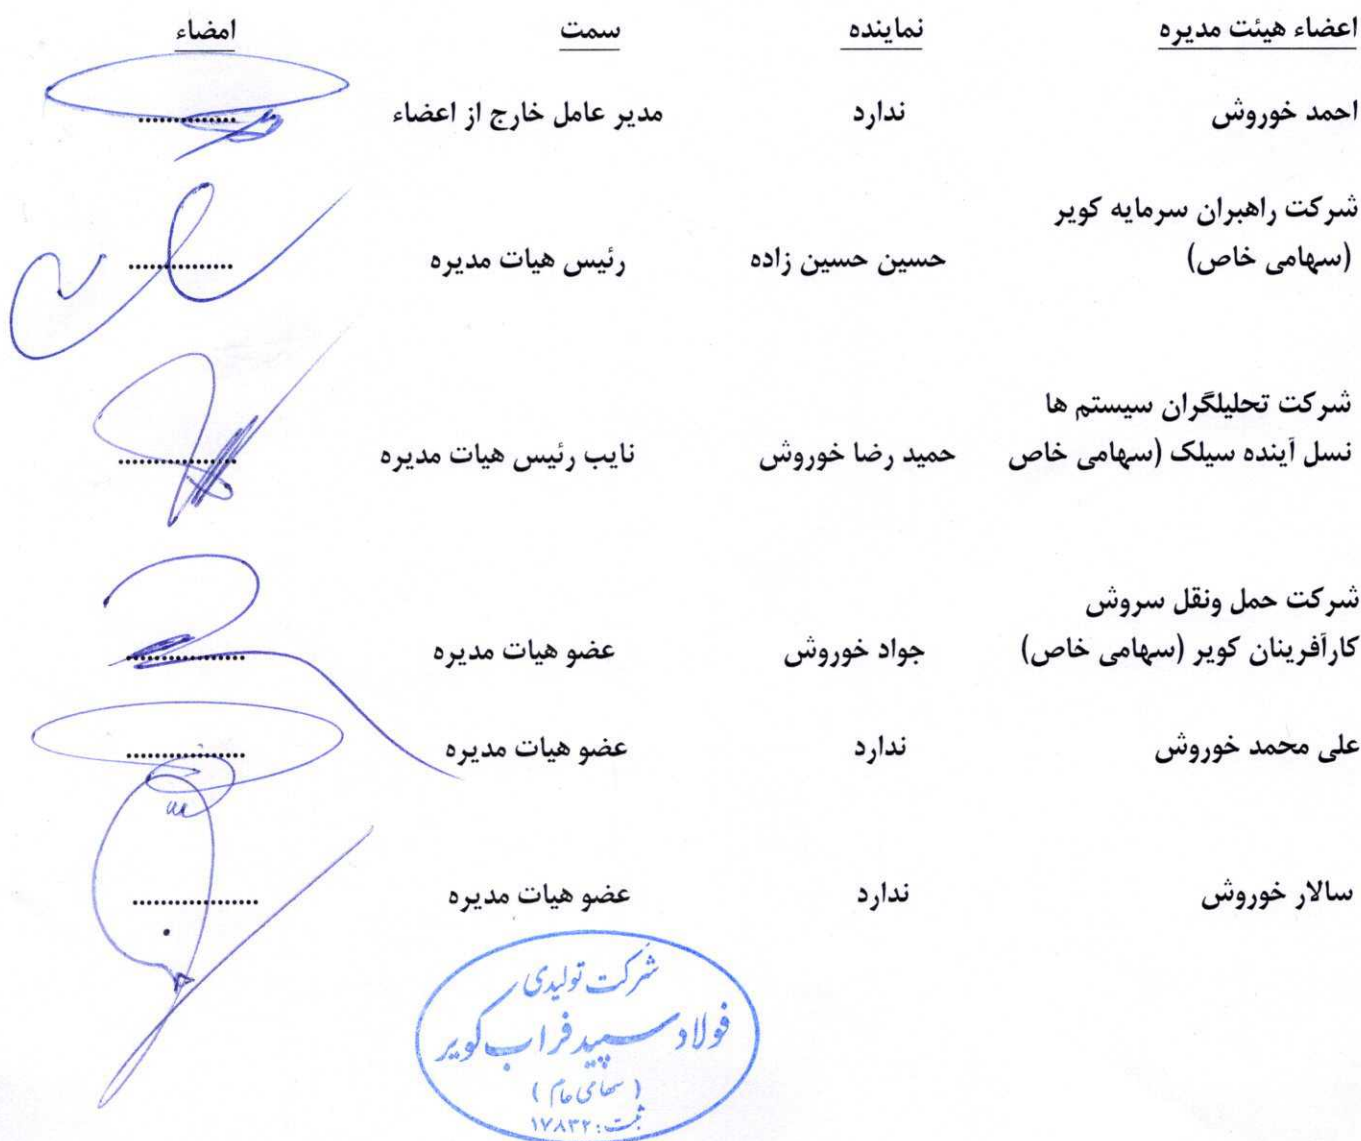 اعضاء هیئت مدیره نماینده سمت امضاء
احمد خوروش ندارد مدیر عامل خارج از اعضاء ..............
شرکت راهبران سرمایه کویر
(سهامی خاص) حسین حسین زاده رئیس هیات مدیره ...............
شرکت تحلیلگران سیستم ها
نسل آینده سیلک (سهامی خاص حمید رضا خوروش نایب رئیس هیات مدیره .................
شرکت حمل ونقل سروش
کارآفرینان کویر (سهامی خاص) جواد خوروش عضو هیات مدیره .................
علی محمد خوروش ندارد عضو هیات مدیره .................
سالار خوروش ندارد عضو هیات مدیره ..................
شرکت تولیدی
فولاد سپید فراب کویر
( سهامی عام )
ثبت: ۱۷۸۳۲